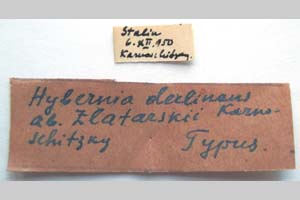 Stalin
6. XII. 950
Karnoschitzky.
Hybernia declinans
ab. Zlatarskii Karno-
schitzky Typus.